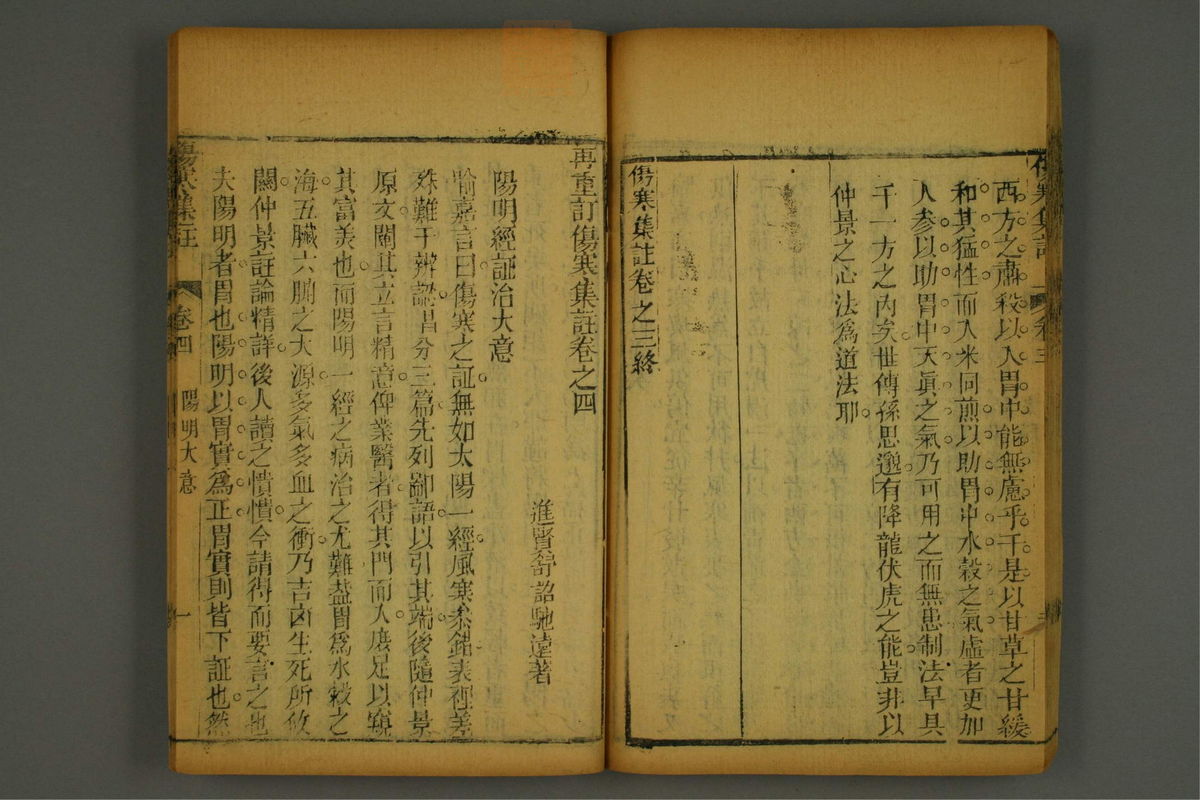 傷寒集註
卷三
西方之肅殺以入胃中能無慮乎于是以甘草之甘緩
和其猛性而入米同煎以助胃中水穀之氣虛者更加
人参以助胃中天眞之氣乃可用之而無患制法早具
千一方之內矣世傳孫思邈有降龍伏虎之能豈非以
仲景之心法爲道法耶
傷寒集註卷之三終
再重訂傷寒集註卷之四
進賢舒詔馳遠著
陽明經証治大意
喻嘉言曰傷寒之証無如太陽一經風寒叅錯表裡差
殊難于辨認昌分三篇先列鄙語以引其端後隨仲景
原文闡其立言精意俾業醫者得其門而入庶足以窺
其富美也而陽明一經之病治之尤難葢胃爲水穀之
海五臟六腑之大源多氣多血之衝乃吉凶生死所攸
關仲景註論精詳後人讀之憒憒今請得而要言之也
夫陽明者胃也陽明以胃實爲正胃實則皆下証也然
傷寒集註
卷四
陽明大意
一